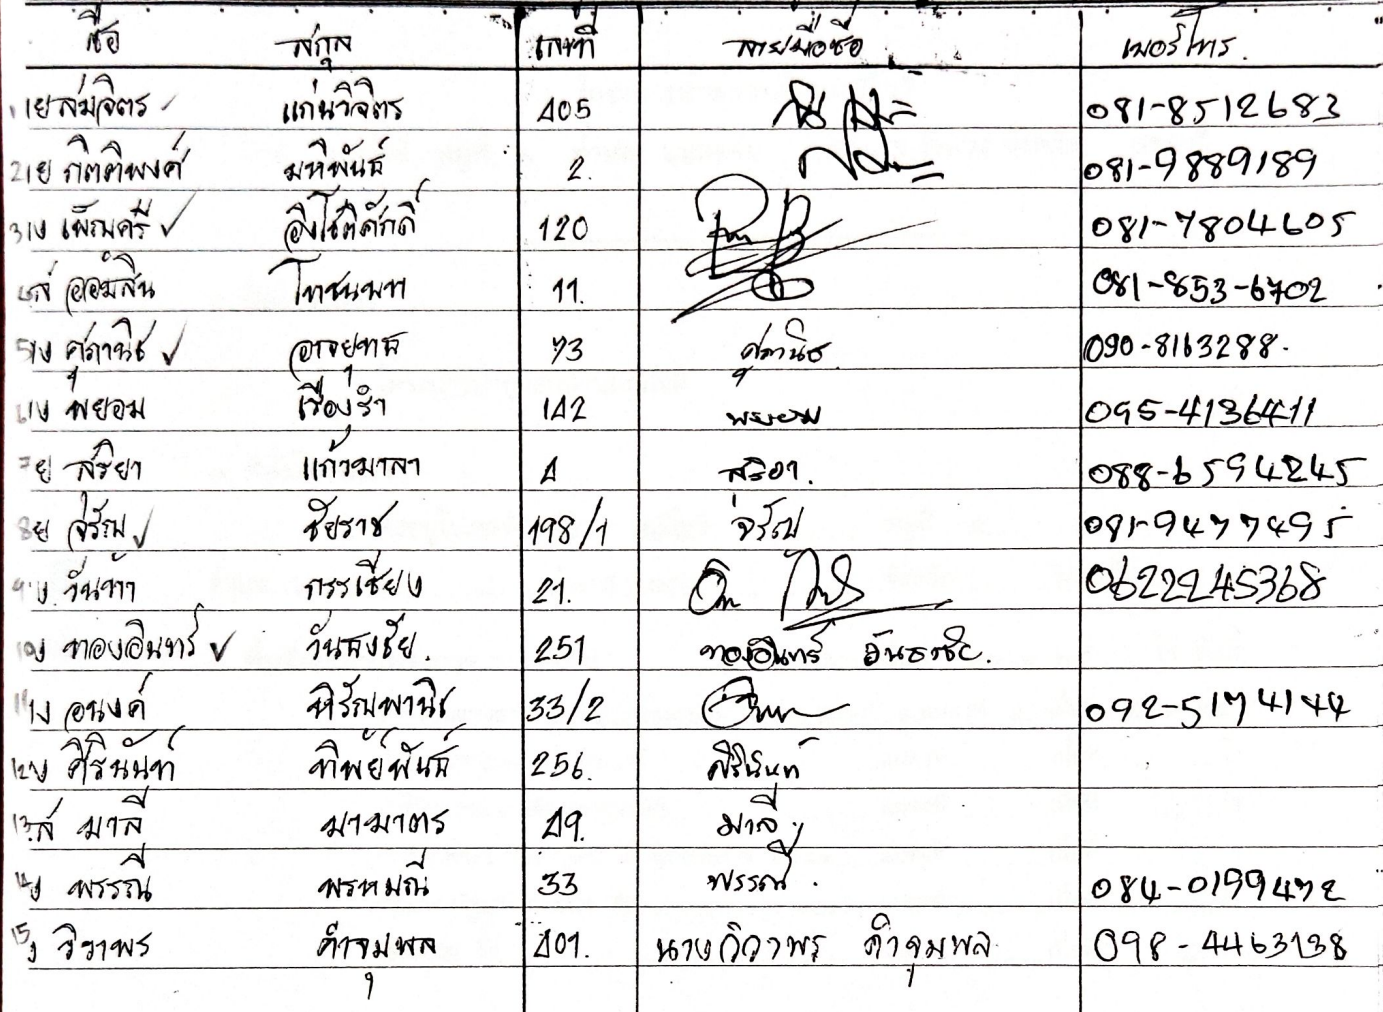 ชื่อ สกุล เลขที่ ลายมือชื่อ เบอร์โทร.
1 ย สมจิตร แก่นวิจิตร 405 081-8512683
2 ย กิตติพงศ์ มหิพันธ์ 2. 081-9889189
3 ง เพ็ญศรี อิงโชติศักดิ์ 120 081-7804605
ส ออมสิน โภชนพท 11. 081-853-6702
5 ง ศุภานิช อาจยุทธ 73 ศุภานิช 090-8163288.
6 ง พยอม เรืองรำ 142 พยอม 095-4136411
7 ย สริยา แก้วมาลา 4 สริยา. 088-6594245
8 ย จรัญ ชัยราช 198/1 จรัญ 081-9477495
9 ง. วันทา กรรเชียง 21. 0622245368
10 ง ทองอินทร์ วันธงชัย. 251 ทองอินทร์ วันธงชัย.
11 ง อนงค์ หิรัญพานิช 33/2 092-5174144
12 ง ศิรินันท์ ทิพย์พันธ์ 256. ศิรินันท์
13 ส มาลี มามาตร 49. มาลี.
14 ง พรรณี พรหมณี 33 พรรณี. 084-0199472
15 ง วิวาพร คำจุมพล 401. นางวิวาพร คำจุมพล 098-4463138